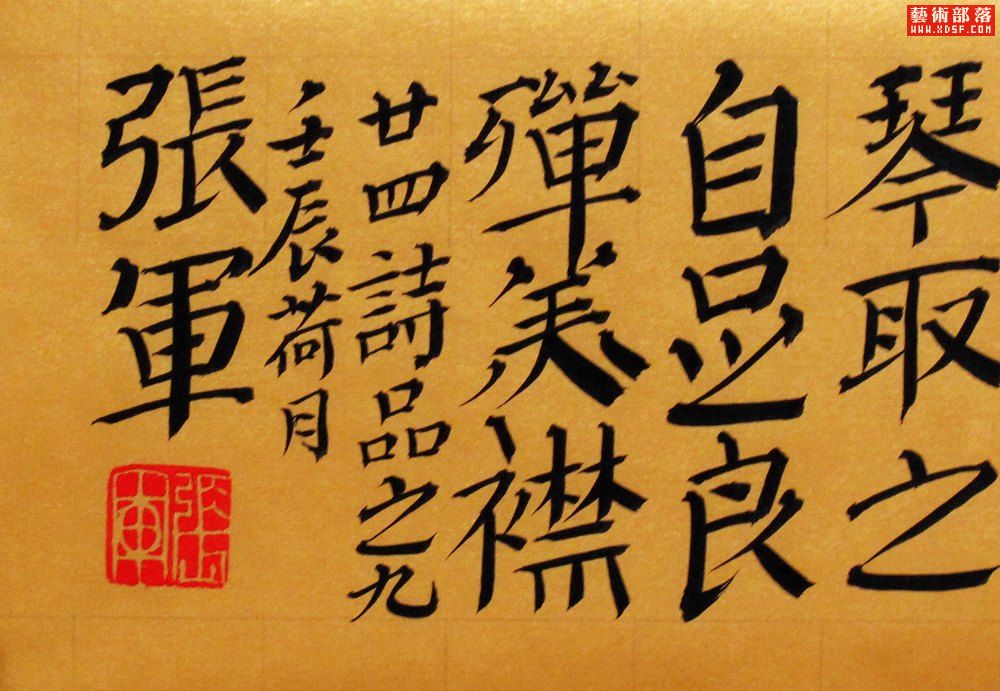 琴取之
自足良
殫美襟
廿四詩品之九
壬辰荷月
張軍
張軍
藝術部落
WWW.XDSF.COM